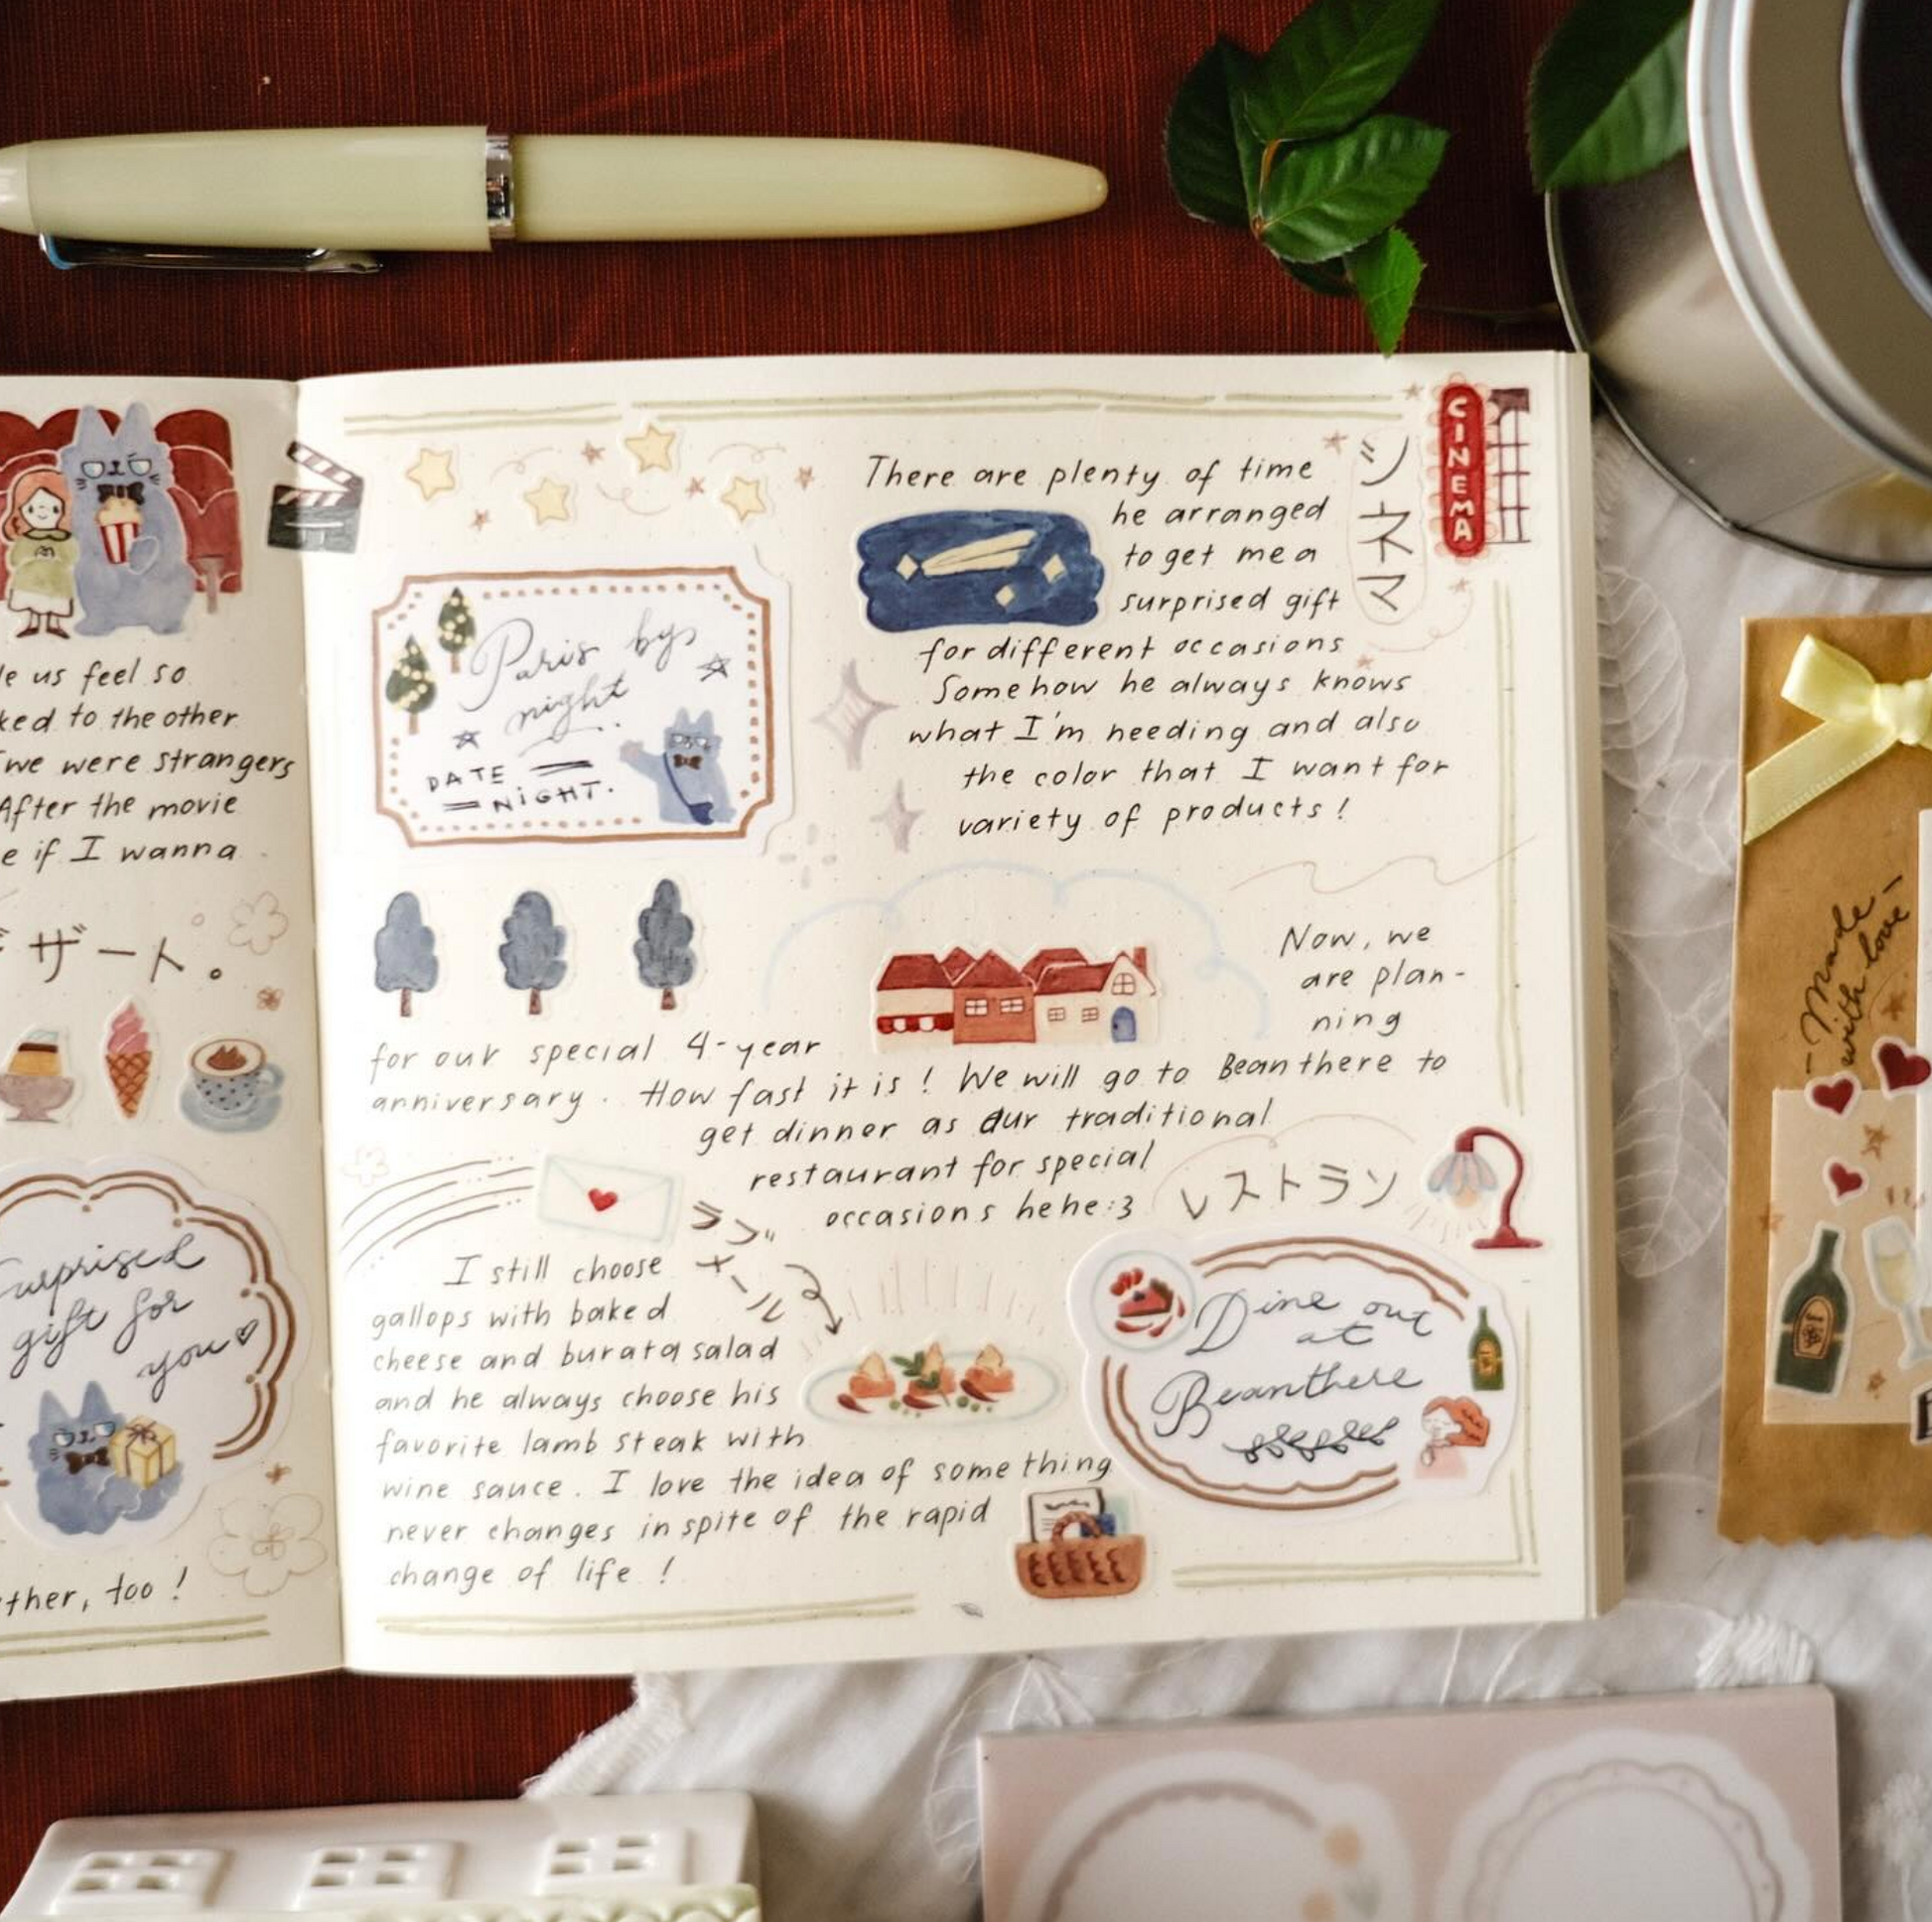 le us feel so
ked to the other
we were strangers
After the movie
e if I wanna
ザート。
Surprised
gift for
you
ther, too!
CINEMA
シネマ
There are plenty of time
he arranged
to get me a
surprised gift
for different occasions
Somehow he always knows
what I'm needing and also
the color that I want for
variety of products!
Paris by
night
DATE
NiGHT.
Now, we
are plan-
ning
for our special 4-year
anniversary. How fast it is! We will go to Beanthere to
get dinner as our traditional
restaurant for special
occasions hehe:3
レストラン
ラブ
メール
I still choose
gallops with baked
cheese and burata salad
and he always choose his
favorite lamb steak with
wine sauce. I love the idea of something
never changes in spite of the rapid
change of life!
Dine out
at
Beanthere
-Made
with love-